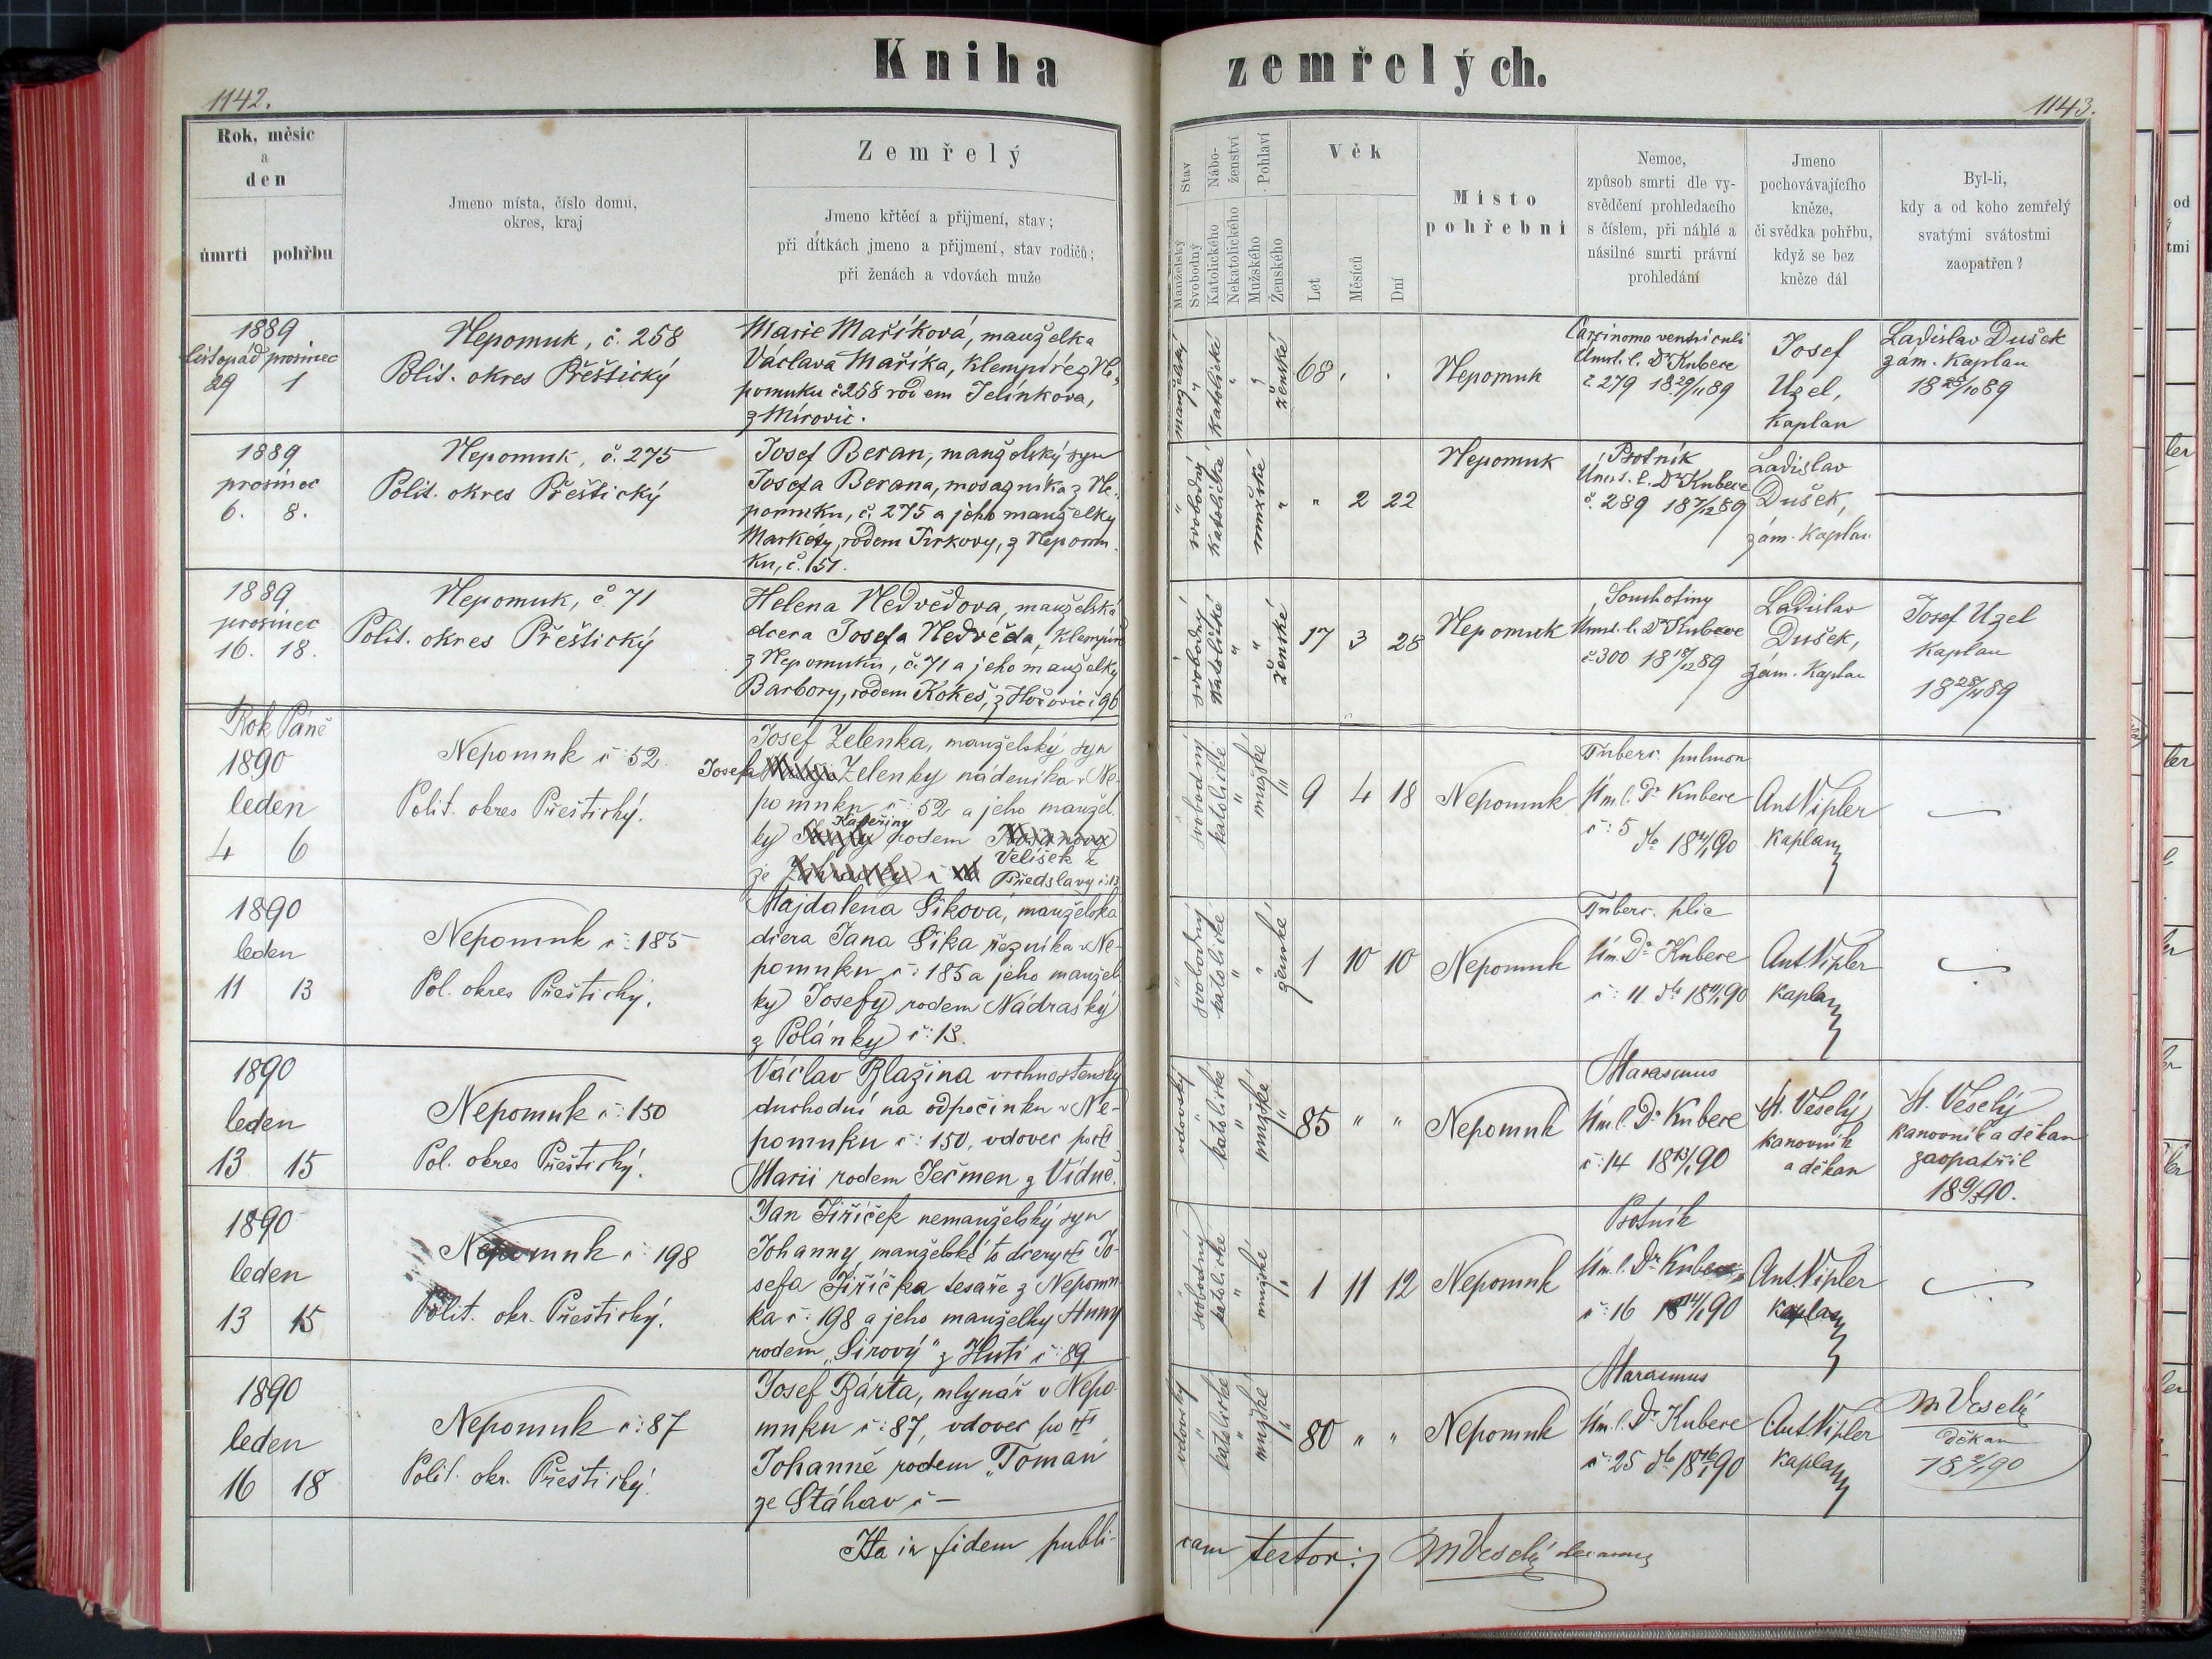 Kniha zemřelých.
1142.
1143.
Rok, měsíc
a
den
úmrtí pohřbu
Jmeno místa, číslo domu,
okres, kraj
Zemřelý
Jmeno křtěcí a přijmení, stav;
při dítkách jmeno a přijmení, stav rodičů;
při ženách a vdovách muže
Stav
Manželský
Svobodný
Nábo-
ženství
Katolického
Nekatolického
Pohlaví
Mužského
Ženského
Věk
Let
Měsíců
Dní
Místo
pohřební
Nemoc,
způsob smrti dle vy-
svědčení prohledacího
s číslem, při náhlé a
násilné smrti právní
prohledání
Jmeno
pochovávajícího
kněze,
či svědka pohřbu,
když se bez
kněze dál
Byl-li,
kdy a od koho zemřelý
svatými svátostmi
zaopatřen?
1889
listopad prosinec
29 1
Nepomuk, č. 258
Polit. okres Přeštický
Marie Maříková, manželka
Václava Maříka, klempíře z Ne-
pomuku č. 258 rodem Jelínkova,
z Mirovic.
manželský
"
katolické
"
"
ženské
68 " "
Nepomuk
Carcinoma ventriculi
Úmrt. l. Dr Kubece
č. 279 18 29/11 89
Josef
Uzel,
kaplan
Ladislav Dušek
zám. kaplan
18 28/10 89
1889
prosinec
6. 8.
Nepomuk, č. 275
Polit. okres Přeštický
Josef Beran, manželský syn
Josefa Berana, mosazníka z Ne-
pomuku, č. 275 a jeho manželky
Markéty, rodem Turkovy, z Nepomu-
ku, č. 151.
"
svobodný
katolické
"
mužské
"
" 2 22
Nepomuk
Psotník
Úmrt. l. Dr Kubece
č. 289 18 7/12 89
Ladislav
Dušek,
zám. kaplan
1889
prosinec
16. 18.
Nepomuk, č. 71
Polit. okres Přeštický
Helena Nedvědova, manželská
dcera Josefa Nedvěda, klempíře
z Nepomuku, č. 71 a jeho manželky
Barbory, rodem Kokeš, z Hořovic č 96
"
svobodný
katolické
"
"
ženské
17 3 28
Nepomuk
Souchotiny
Úmrt. l. Dr Kubece
č. 300 18 18/12 89
Ladislav
Dušek,
zám. kaplan
Josef Uzel
kaplan
18 28/11 89
Rok Páně
1890
leden
4 6
Nepomuk č: 52
Polit. okres Přeštický.
Josef Zelenka, manželský syn
Josefa Zelenky nádeníka v Ne-
pomuku č: 52 a jeho manžel-
ky Kateřiny rodem
Velíšek z
ze Předslavy č: 13
"
svobodný
katolické
"
mužské
"
9 4 18
Nepomuk
Tuberc. pulmon
Úm. l. Dr Kubece
č: 5 do 18 4/1 90
Ant Vipler
kaplan
—
1890
leden
11 13
Nepomuk č: 185
Pol. okres Přeštický.
Majdalena Šiková, manželská
dcera Jana Šika řezníka v Ne-
pomuku č: 185 a jeho manžel-
ky Josefy rodem Nádraský
z Polánky č: 13.
"
svobodný
katolické
"
"
ženské
1 10 10
Nepomuk
Tuberc. plic
Úm. Dr Kubece
č: 11 do 18 11/1 90
Ant Vipler
kaplan
—
1890
leden
13 15
Nepomuk č: 150
Pol. okres Přeštický.
Václav Blažina vrchnostenský
důchodní na odpočinku v Ne-
pomuku č: 150, vdovec po †
Marii rodem Ječmen z Vídně.
vdovský
"
katolické
"
mužské
"
85 " "
Nepomuk
Marasmus
Úm. l. Dr Kubece
č: 14 18 13/1 90
M. Veselý
kanovník
a děkan
M. Veselý
kanovník a děkan
zaopatřil
18 9/1 90.
1890
leden
13 15
Nepomuk č: 198
Polit. okr. Přeštický.
Jan Jiříček nemanželský syn
Johanny, manželské to dcery † Jo-
sefa Jiříčka tesaře z Nepomu-
ka č: 198 a jeho manželky Anny
rodem „Sirový“ z Huti č: 89
"
svobodný
katolické
"
mužské
"
1 11 12
Nepomuk
Psotník
Úm. l. Dr Kubece
č: 16 18 14/1 90
Ant Vipler
kaplan
—
1890
leden
16 18
Nepomuk č: 87
Polit. okr. Přeštický.
Josef Bárta, mlynář v Nepo-
muku č: 87, vdovec po †
Johanně rodem „Toman“
ze Šťáhlav č —
vdovský
"
katolické
"
mužské
"
80 " "
Nepomuk
Marasmus
Úm. l. Dr Kubece
č: 25 do 18 16/1 90
Ant Vipler
kaplan
M Veselý
děkan
18 2/1 90
Ita in fidem publi-
cam testor: M Veselý decanus